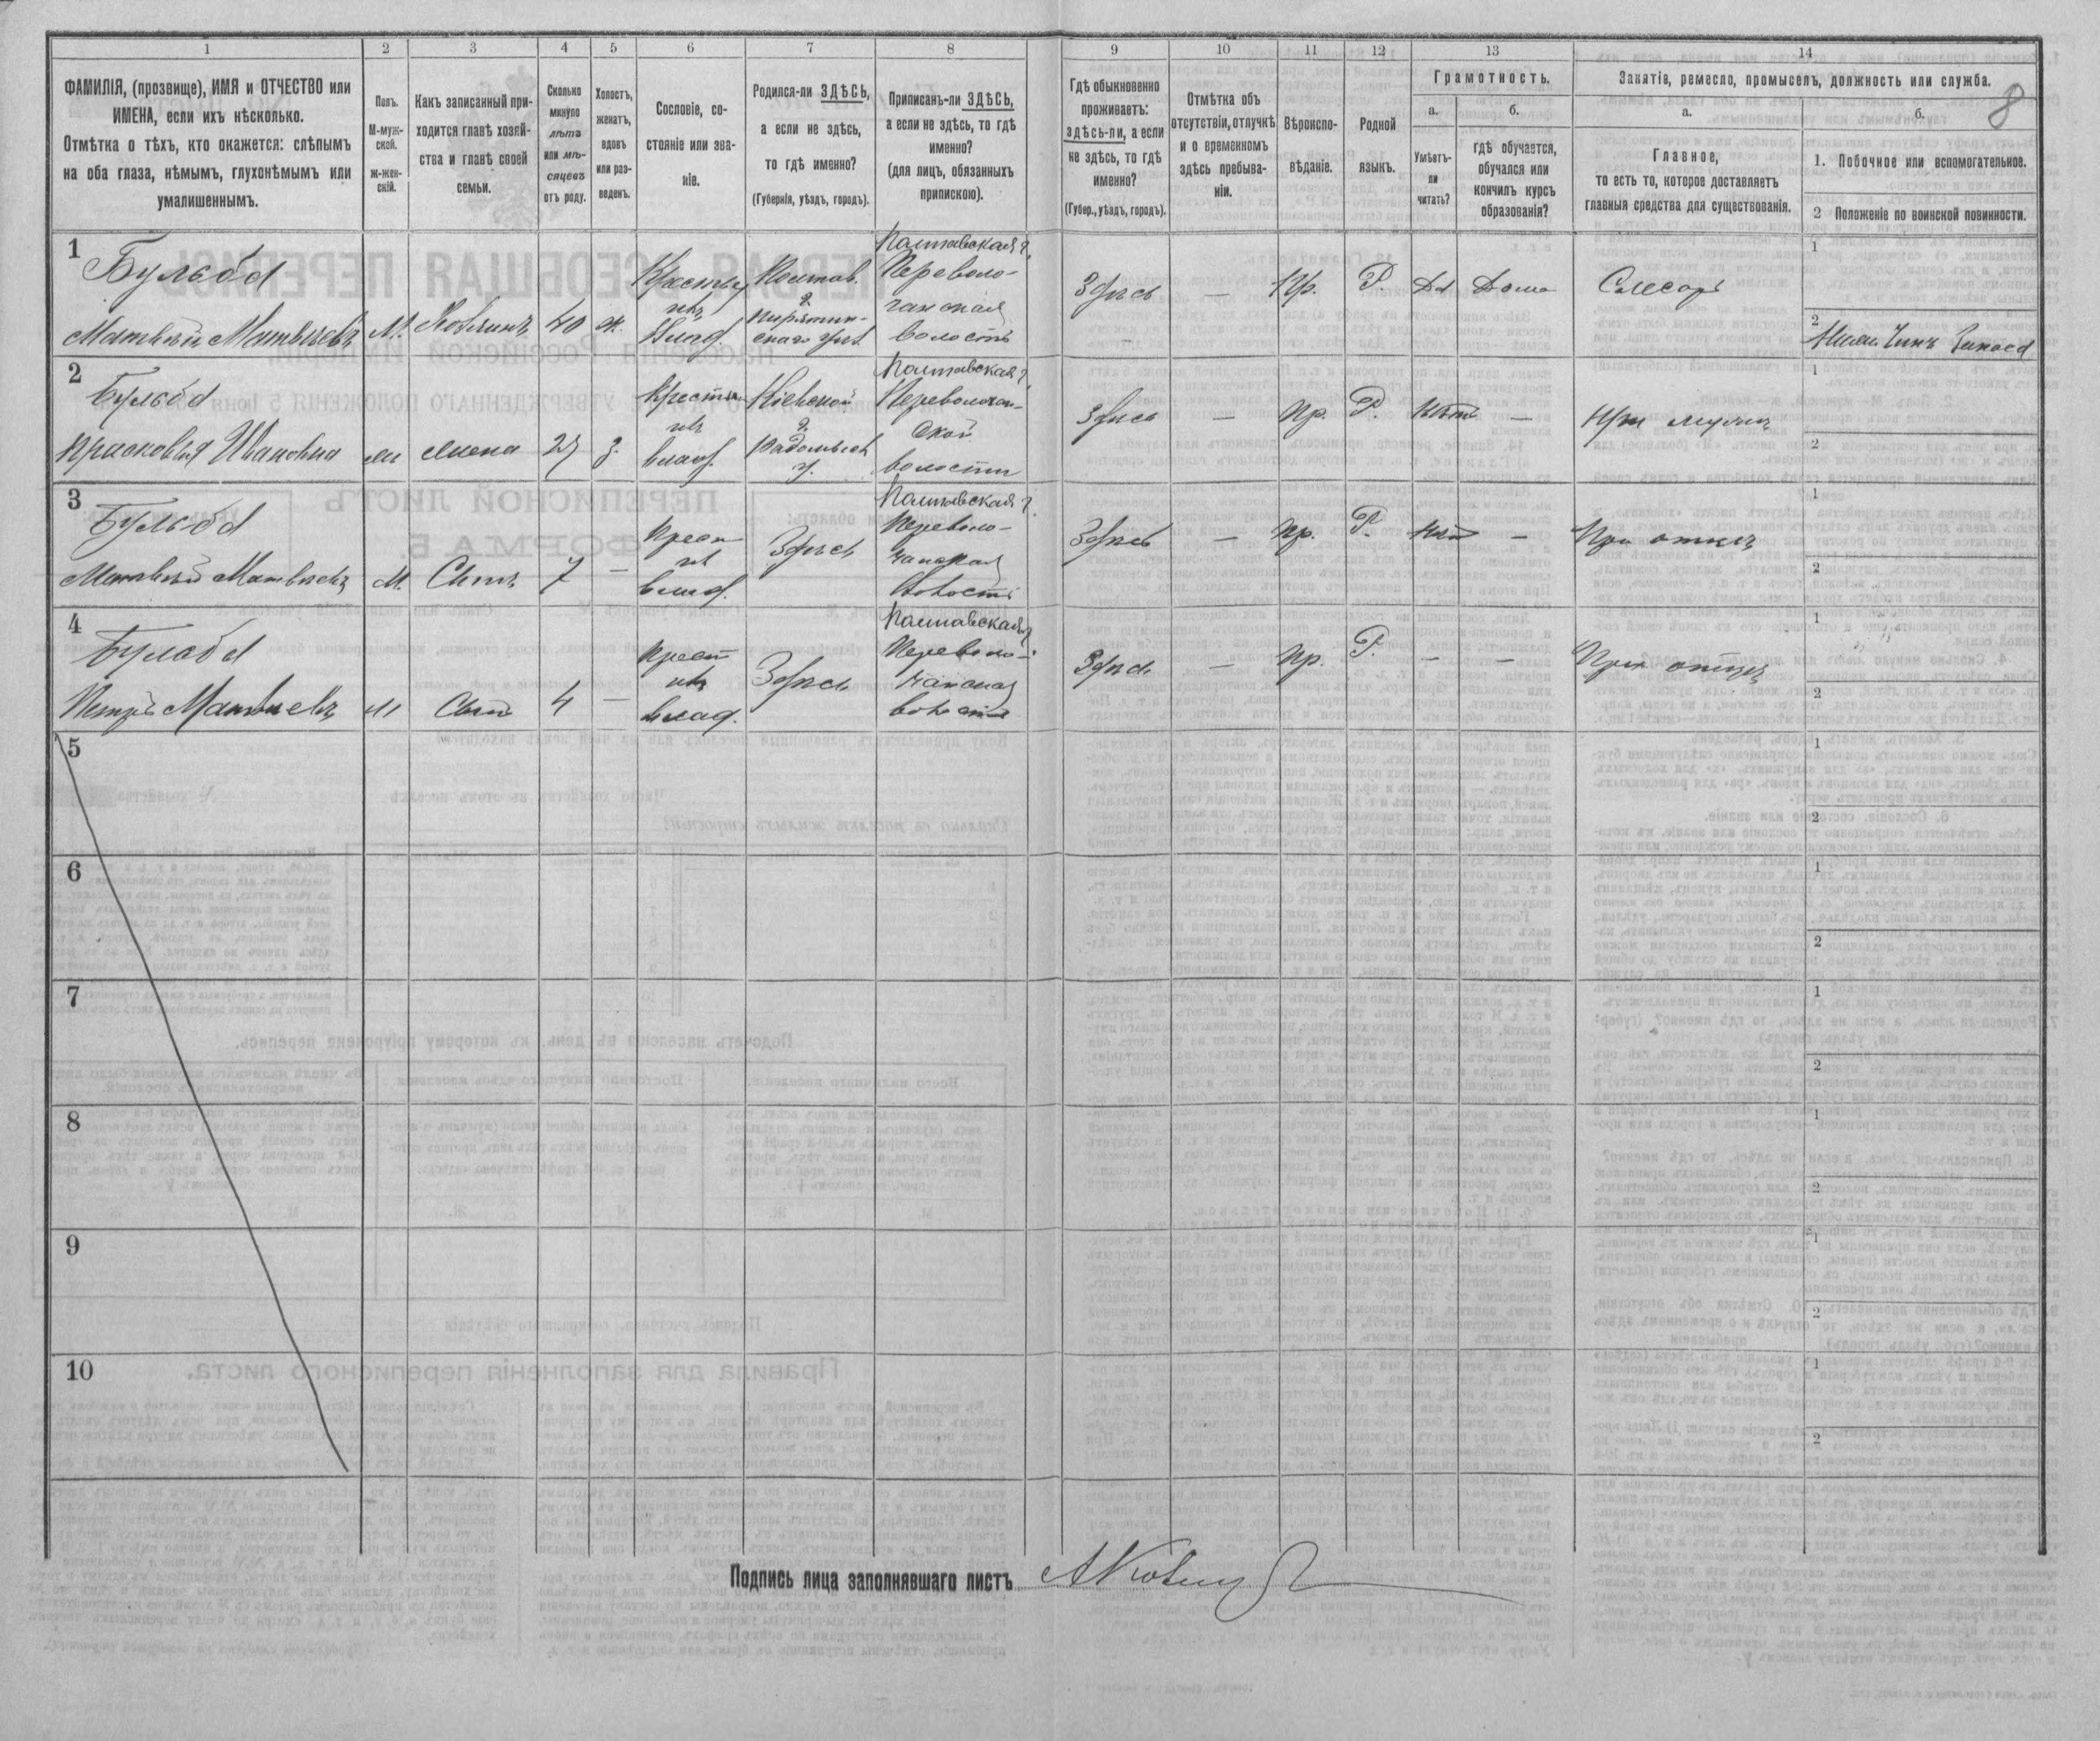 1
2
3
4
5
6
7
8
9
10
11
12
13
14
ФАМИЛІЯ, (прозвище), ИМЯ и ОТЧЕСТВО или
ИМЕНА, если ихъ нѣсколько.
Отмѣтка о тѣхъ, кто окажется: слѣпымъ
на оба глаза, нѣмымъ, глухонѣмымъ или
умалишеннымъ.
Полъ.
М-муж-
ской.
ж-жен-
скій.
Какъ записанный при-
ходится главѣ хозяй-
ства и главѣ своей
семьи.
Сколько
минуло
лѣтъ
или мѣ-
сяцевъ
отъ роду.
Холостъ,
женатъ,
вдовъ
или раз-
веденъ.
Сословіе, со-
стояніе или зва-
ніе.
Родился-ли ЗДѢСЬ,
а если не здѣсь,
то гдѣ именно?
(Губернія, уѣздъ, городъ).
Приписанъ-ли ЗДѢСЬ,
а если не здѣсь, то гдѣ
именно?
(для лицъ, обязанныхъ
припискою).
Гдѣ обыкновенно
проживаетъ:
здѣсь-ли, а если
не здѣсь, то гдѣ
именно?
(Губер., уѣздъ, городъ).
Отмѣтка объ
отсутствіи, отлучкѣ
и о временномъ
здѣсь пребыва-
ніи.
Вѣроиспо-
вѣданіе.
Родной
языкъ.
Грамотность.
а.
Умѣетъ-
ли
читать?
б.
гдѣ обучается,
обучался или
кончилъ курсъ
образованія?
Занятіе, ремесло, промыселъ, должность или служба.
а.
Главное,
то есть то, которое доставляетъ
главныя средства для существованія.
б.
8
1. Побочное или вспомогательное.
2 Положеніе по воинской повинности.
1
Бульба
Матвѣй Матвѣевъ
М.
Хозяинъ
40
ж.
Крестья
нъ
Влад.
Полтав.
г.
Пирятин-
скаго уѣз.
Полтавская г.
Переволо-
чанская
волость
Здѣсь
—
Пр.
Р.
Да
Дома
Слесарь
1
2
2
Бульба
Прасковья Ивановна
жена
27
з.
Крестья
нъ
влад.
Кіевской
г.
Радомысл
у.
Полтавская г.
Переволочан-
ской
волости
Здѣсь
—
Пр.
Р.
Нѣтъ
—
При мужѣ
1
2
3
Бульба
Матвѣй Матвѣевъ
М.
Сынъ
7
—
Крест
нъ
влад.
Здѣсь
Полтавская г.
Переволо-
чанская
волость
Здѣсь
—
Пр.
Р.
Нѣт
—
При отцѣ
1
2
4
Бульба
Петръ Матвѣевъ
М
Сынъ
4
—
Крест
нъ
влад.
Здѣсь
Полтавская г.
Переволо-
чанская
волость
Здѣсь
—
Пр.
Р.
—
—
При отцѣ
1
2
5
1
2
6
1
2
7
1
2
8
1
2
9
1
2
10
1
2
Подпись лица заполнявшаго листъ